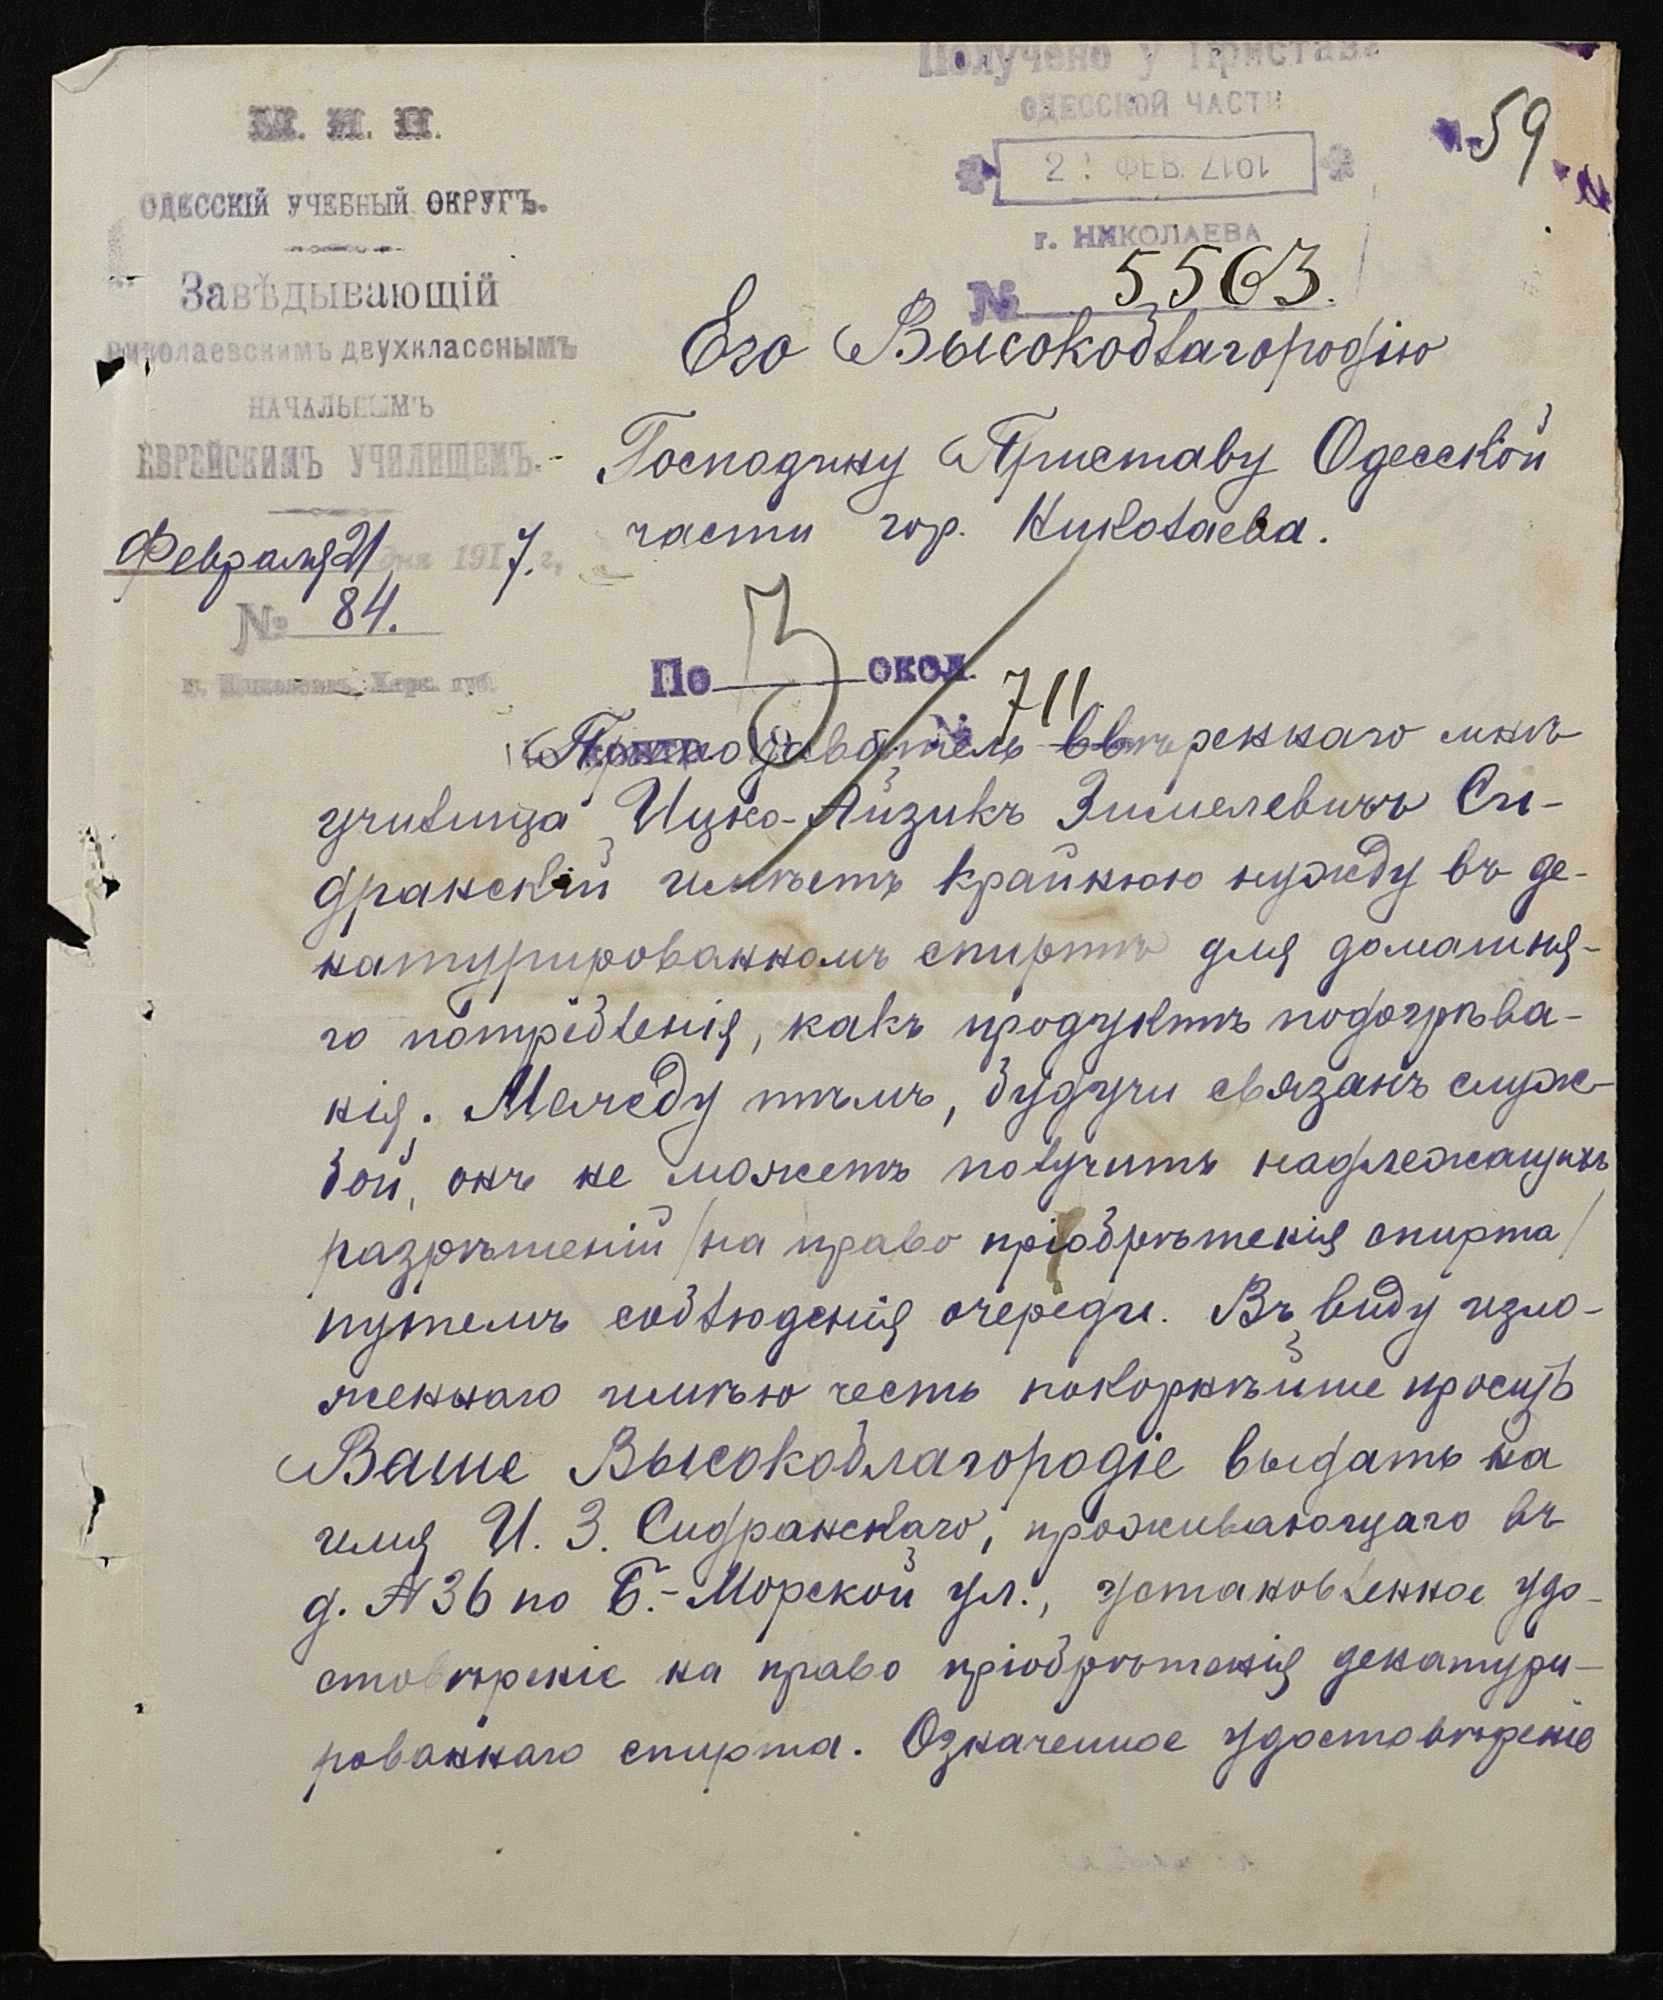 Получено у Пристава
ОДЕССКОЙ ЧАСТИ
59
М. Н. П.
ОДЕССКІЙ УЧЕБНЫЙ ОКРУГЪ.
г. НИКОЛАЕВА
№ 5563.
Завѣдывающій
Николаевскимъ двухкласснымъ
НАЧАЛЬНЫМЪ
ЕВРЕЙСКИМЪ УЧИЛИЩЕМЪ.
Февраля 21 дня 1917. г.
№ 84.
г. Николаевъ, Херс. губ.
Его Высокоблагородію
Господину Приставу Одесской
части гор. Николаева.
По 3 окол.
№ 711.
Преподаватель ввѣреннаго мнѣ
училища Ицко-Айзикъ Зимелевичъ Си-
дранскій имѣетъ крайнюю нужду въ де-
натурированномъ спиртѣ для домашня-
го потребленія, какъ продуктъ подогрѣва-
нія. Между тѣмъ, будучи связанъ служ-
бой, онъ не можетъ получить надлежащихъ
разрѣшеній /на право пріобрѣтенія спирта/
путемъ соблюденія очереди. Въ виду изло-
женнаго имѣю честь покорнѣйше просить
Ваше Высокоблагородіе выдать на
имя И. З. Сидранскаго, проживающаго въ
д. № 36 по Б.-Морской ул., установленное удо-
стовѣреніе на право пріобрѣтенія денатури-
рованнаго спирта. Означенное удостовѣреніе